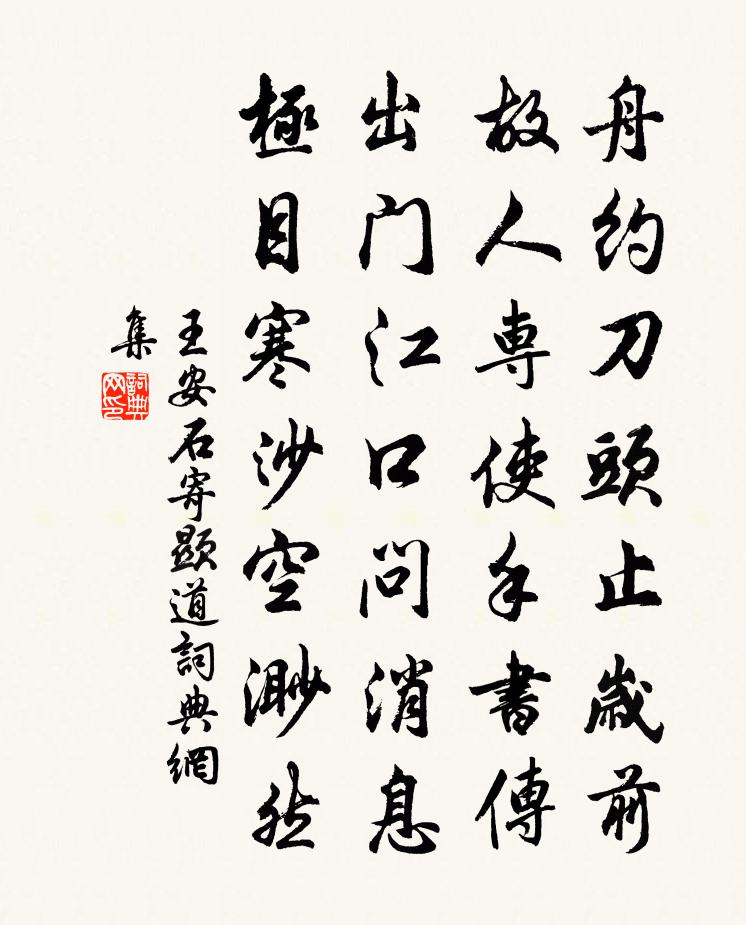 舟約刀頭止歲前
故人專使手書傳
出門江口問消息
極目寒沙空渺然
王安石寄顯道詞典網
集
詞典
网印